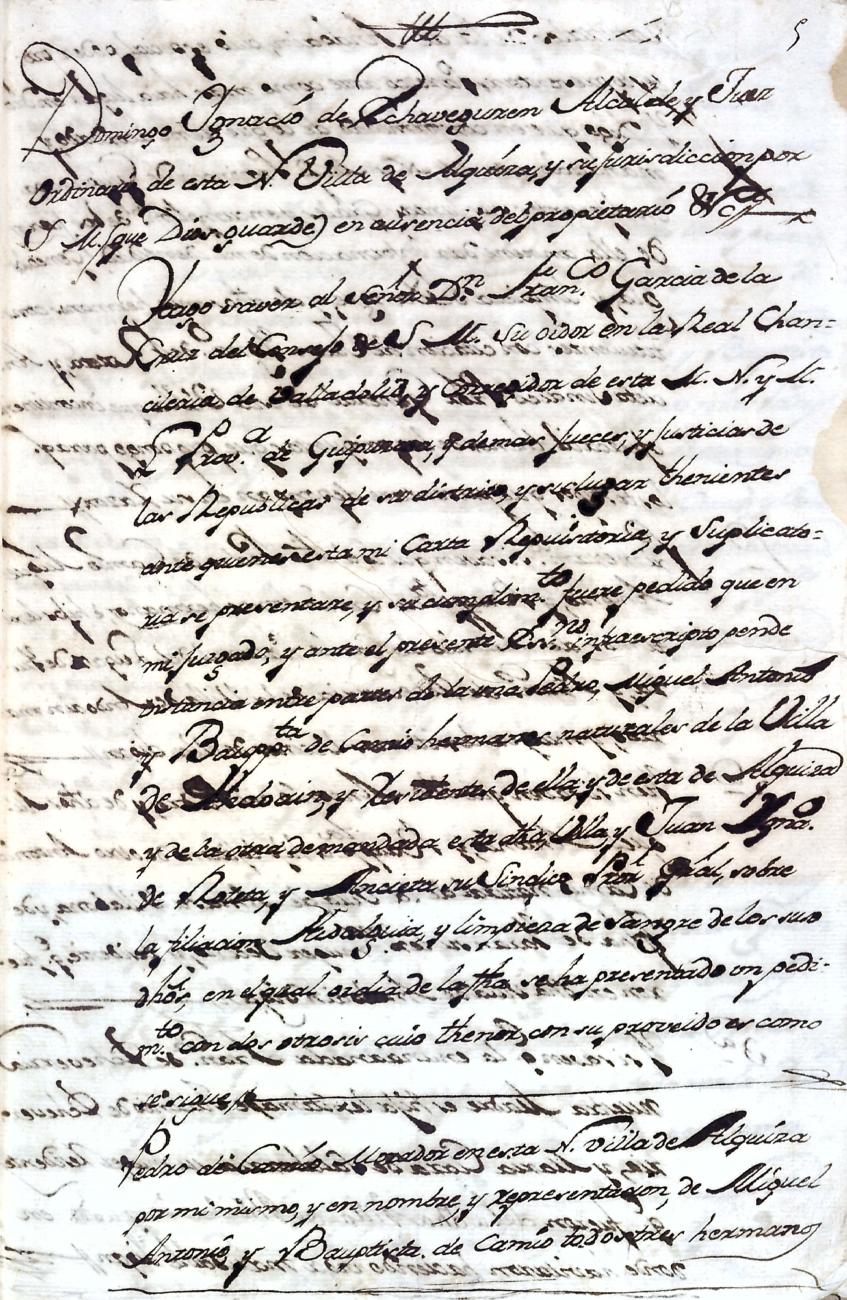 5
Domingo Ignació de Echaveguren Alcalde, y Juez
ordinario de esta N. Villa de Alquiza, y su jurisdiccion por
S. M. (que Dios guarde) en ausencia del propietarió &c.ª
Hago saver al Señor D.n Fran.co Garcia de la
Cruz del Consejo de S. M. su oidor en la Real Chan=
cilleria de Valladolid, y Corregidor de esta M. N. y M.
L. Prov.a de Guipuzcoa, y demas Jueces, y Justicias de
las Republicas de su distrito, y sus lugar thenientes
ante quienes esta mi Carta Requisitoria, y Suplicato=
ria se presentare, y su cumplim.to fuere pedido que en
mi Juzgado, y ante el presente Es.no infraescripto pende
instancia entre partes de la una Pedro, Miguel Antonio
y Baup.ta de Camio hermanos naturales de la Villa
de Andoain, y residentes de ella y de esta de Alquiza
y de la otra demandada esta dha Villa, y Juan Igna.o
de Roteta, y Ancieta su Sindico Pror Gral, sobre
la filiacion Hidalguia, y limpieza de sangre de los suso
dhos, en el qual oi dia de la fha se ha presentado un pedi-
m.to con dos otrosis cuio thenor, con su proveido es como
se sigue
Pedro de Camio Morador en esta N. villa de Alquiza
por mi mismo, y en nombre, y representacion, de Miguel
Antonio, y Bauptista de Camio todos tres hermanos